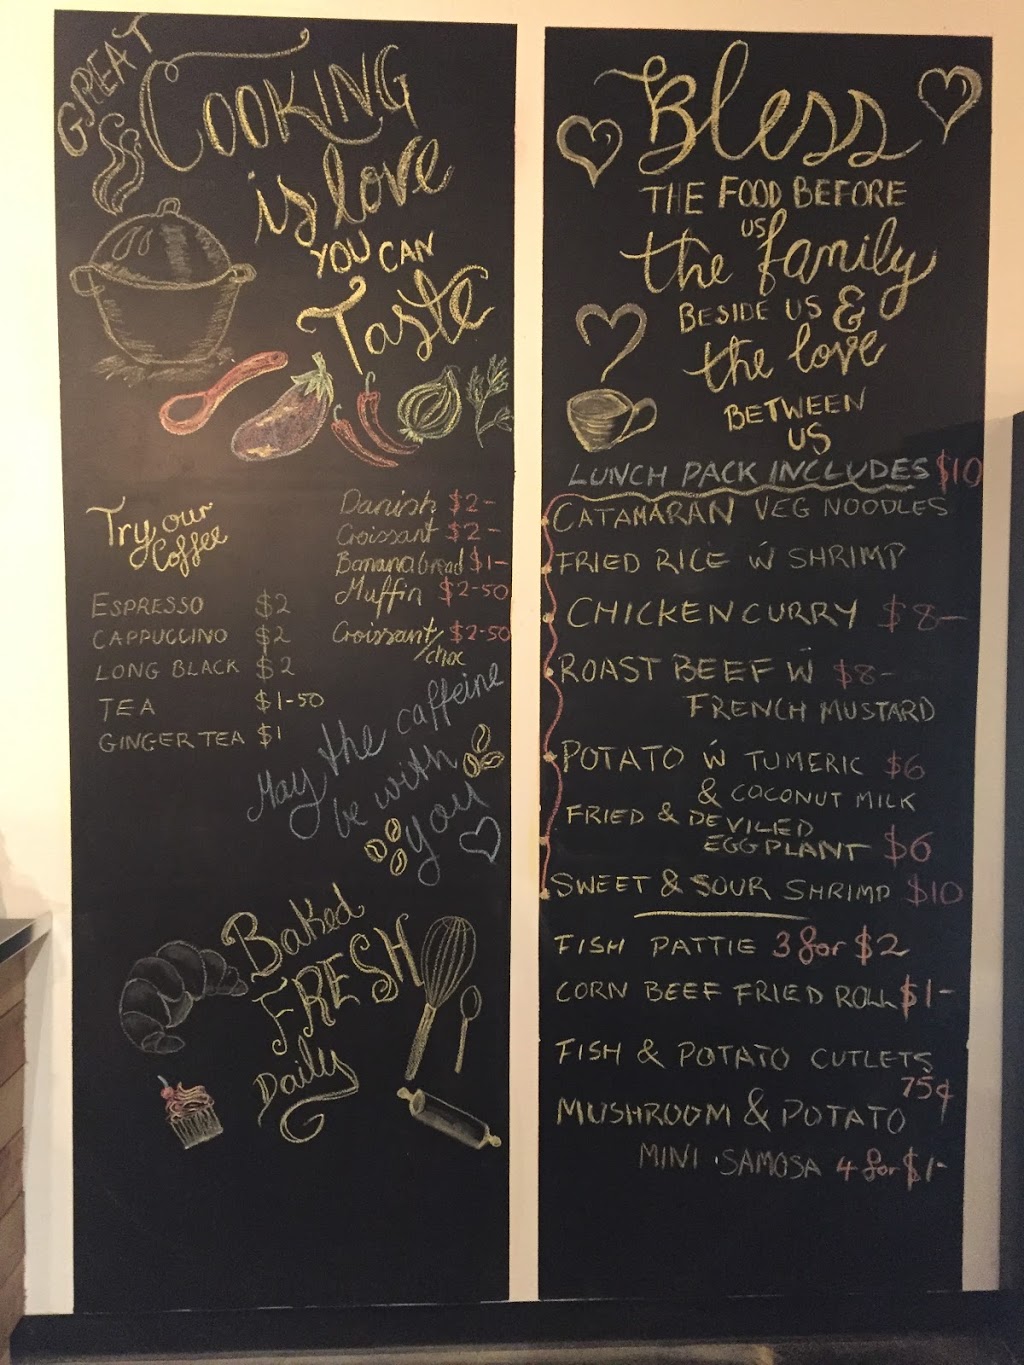 GREAT
COOKING
is love
YOU CAN
Taste
Try our
Coffee
ESPRESSO $2
CAPPUCCINO $2
LONG BLACK $2
TEA $1-50
GINGER TEA $1
Danish $2-
Croissant $2-
Banana bread $1-
Muffin $2-50
Croissant/ $2-50
choc
May the caffeine
be with
you
Baked
FRESH
Daily
Bless
THE FOOD BEFORE
US
the family
BESIDE US &
the love
BETWEEN
US
LUNCH PACK INCLUDES $10
CATAMARAN VEG NOODLES
FRIED RICE W SHRIMP
CHICKEN CURRY $8-
ROAST BEEF W $8-
FRENCH MUSTARD
POTATO W TUMERIC $6
& COCONUT MILK
FRIED & DEVILED
EGGPLANT $6
SWEET & SOUR SHRIMP $10
FISH PATTIE 3 for $2
CORN BEEF FRIED ROLL $1-
FISH & POTATO CUTLETS
75¢
MUSHROOM & POTATO
MINI SAMOSA 4 for $1-